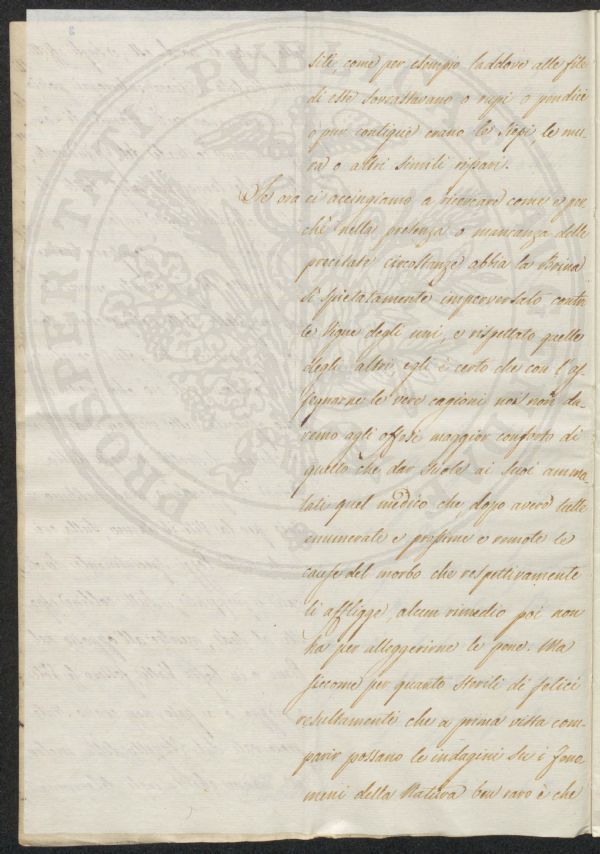 siti, come per esempio laddove alle file
di esse sovrastavano o rupi o pendici
o pur contigue erano le siepi, le mu
ra o altri simili ripari.
Se ora ci accingiamo a ricercare come e per
chè nella presenza o mancanza delle
precitate circostanze abbia la Brina
sì spietatamente imperversato contro
le vigne degli uni, e rispettato quelle
degli altri, egli è certo che con l'as
segnarne le vere cagioni noi non da
remo agli offesi maggior conforto di
quello che dar suole ai suoi amma
lati quel medico che dopo avere tutte
enumerate e prossime e remote le
cause del morbo che respettivamente
li affligge, alcun rimedio poi non
ha per alleggerirne le pene. Ma
siccome per quanto sterili di felici
resultamenti che a prima vista com
parir possano le indagini su i feno
meni della Natura ben raro è che
PROSPERITATI PUBLICAE